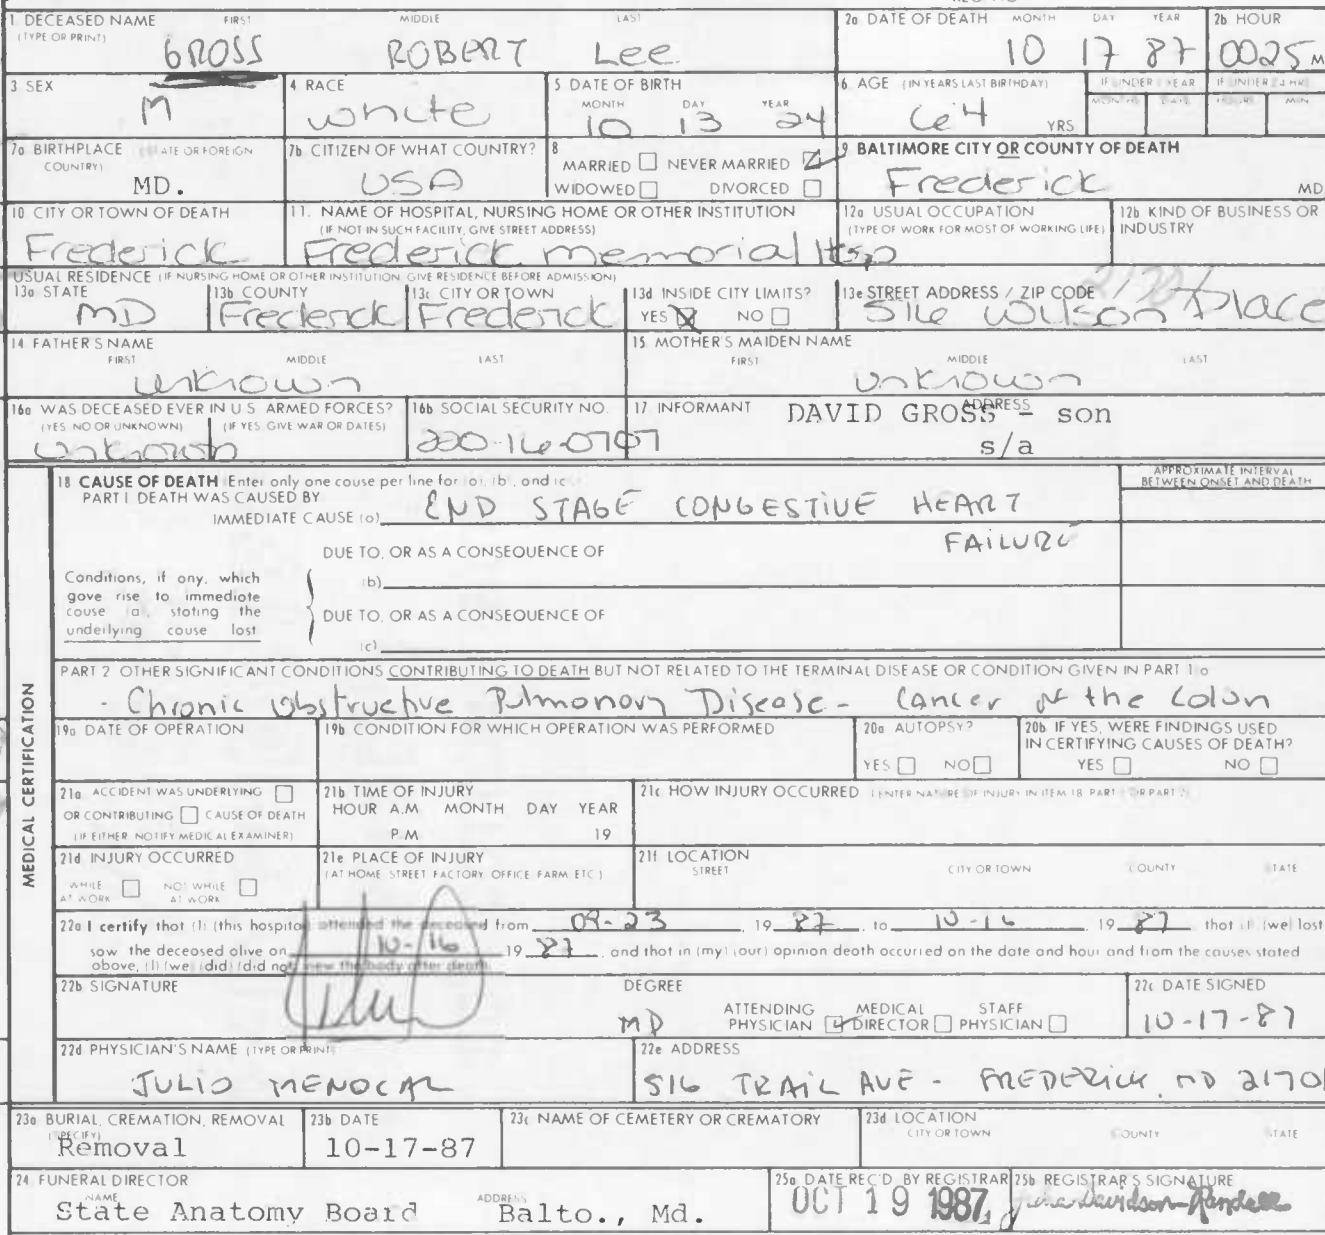 1 DECEASED NAME FIRST MIDDLE LAST
(TYPE OR PRINT)
GROSS ROBERT Lee
2a DATE OF DEATH MONTH DAY YEAR
10 17 87
2b HOUR
0025 M
3 SEX
M
4 RACE
white
5 DATE OF BIRTH
MONTH DAY YEAR
10 13 24
6 AGE (IN YEARS LAST BIRTHDAY) IF UNDER 1 YEAR IF UNDER 24 HRS
64 YRS MONTHS DAYS HOURS MIN
7a BIRTHPLACE (STATE OR FOREIGN
COUNTRY)
MD.
7b CITIZEN OF WHAT COUNTRY?
USA
8
MARRIED NEVER MARRIED
WIDOWED DIVORCED
9 BALTIMORE CITY OR COUNTY OF DEATH
Frederick MD
10 CITY OR TOWN OF DEATH
Frederick
11. NAME OF HOSPITAL, NURSING HOME OR OTHER INSTITUTION
(IF NOT IN SUCH FACILITY, GIVE STREET ADDRESS)
Frederick memorial Hosp
12a USUAL OCCUPATION
(TYPE OF WORK FOR MOST OF WORKING LIFE)
12b KIND OF BUSINESS OR
INDUSTRY
USUAL RESIDENCE (IF NURSING HOME OR OTHER INSTITUTION, GIVE RESIDENCE BEFORE ADMISSION)
13a STATE
MD
13b COUNTY
Frederick
13c CITY OR TOWN
Frederick
13d INSIDE CITY LIMITS?
YES NO
13e STREET ADDRESS / ZIP CODE 21701
516 Wilson Place
14 FATHER'S NAME
FIRST MIDDLE LAST
unknown
15 MOTHER'S MAIDEN NAME
FIRST MIDDLE LAST
unknown
16a WAS DECEASED EVER IN U S ARMED FORCES?
(YES NO OR UNKNOWN) (IF YES, GIVE WAR OR DATES)
unknown
16b SOCIAL SECURITY NO.
220-16-0707
17 INFORMANT ADDRESS
DAVID GROSS - son
s/a
18 CAUSE OF DEATH (Enter only one cause per line for (a), (b), and (c)
APPROXIMATE INTERVAL
BETWEEN ONSET AND DEATH
PART I DEATH WAS CAUSED BY
IMMEDIATE CAUSE (a) END STAGE CONGESTIVE HEART
FAILURE
DUE TO, OR AS A CONSEQUENCE OF
(b)
Conditions, if any, which
gave rise to immediate
cause (a), stating the
underlying cause last
DUE TO, OR AS A CONSEQUENCE OF
(c)
PART 2 OTHER SIGNIFICANT CONDITIONS CONTRIBUTING TO DEATH BUT NOT RELATED TO THE TERMINAL DISEASE OR CONDITION GIVEN IN PART 1 a
- Chronic obstructive Pulmonary Disease - Cancer of the Colon
MEDICAL CERTIFICATION
19a DATE OF OPERATION
19b CONDITION FOR WHICH OPERATION WAS PERFORMED
20a AUTOPSY?
YES NO
20b IF YES, WERE FINDINGS USED
IN CERTIFYING CAUSES OF DEATH?
YES NO
21a ACCIDENT WAS UNDERLYING
OR CONTRIBUTING CAUSE OF DEATH
(IF EITHER NOTIFY MEDICAL EXAMINER)
21b TIME OF INJURY
HOUR A.M MONTH DAY YEAR
P.M 19
21c HOW INJURY OCCURRED (ENTER NATURE OF INJURY IN ITEM 18 PART 1 OR PART 2)
21d INJURY OCCURRED
WHILE AT WORK NOT WHILE AT WORK
21e PLACE OF INJURY
(AT HOME STREET FACTORY OFFICE FARM ETC)
21f LOCATION
STREET CITY OR TOWN COUNTY STATE
22a I certify that (I) (this hospital) attended the deceased from 09-23, 19 87, to 10-16 19 87, that (I) (we) last
saw the deceased alive on 10-16 19 87, and that in (my) (our) opinion death occurred on the date and hour and from the causes stated
above, (I) (we) (did) (did not) view the body after death
22b SIGNATURE
DEGREE
MD
ATTENDING PHYSICIAN MEDICAL DIRECTOR STAFF PHYSICIAN
22c DATE SIGNED
10-17-87
22d PHYSICIAN'S NAME (TYPE OR PRINT)
JULIO MENOCAL
22e ADDRESS
516 TRAIL AVE - FREDERICK MD 21701
23a BURIAL, CREMATION, REMOVAL
(SPECIFY)
Removal
23b DATE
10-17-87
23c NAME OF CEMETERY OR CREMATORY
23d LOCATION
CITY OR TOWN COUNTY STATE
24 FUNERAL DIRECTOR
NAME ADDRESS
State Anatomy Board Balto., Md.
25a DATE REC'D BY REGISTRAR
OCT 19 1987
25b REGISTRAR'S SIGNATURE
Davidson-Randall